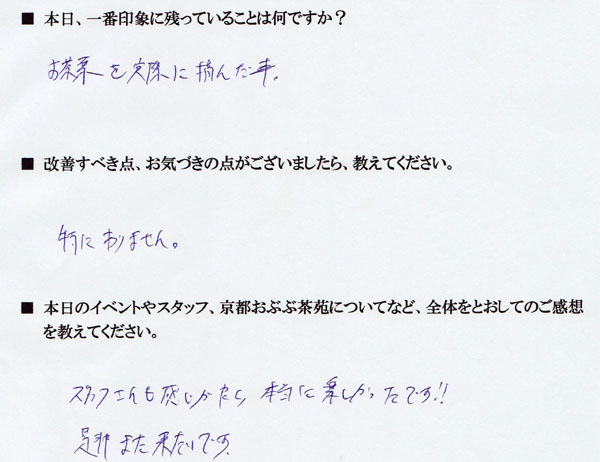 ■ 本日、一番印象に残っていることは何ですか？
お茶葉を実際に摘んだ事。
■ 改善すべき点、お気づきの点がございましたら、教えてください。
特にありません。
■ 本日のイベントやスタッフ、京都おぶぶ茶苑についてなど、全体をとおしてのご感想
を教えてください。
スタッフさんも感じ 本当に楽しかったです!!
是非また来たいです.